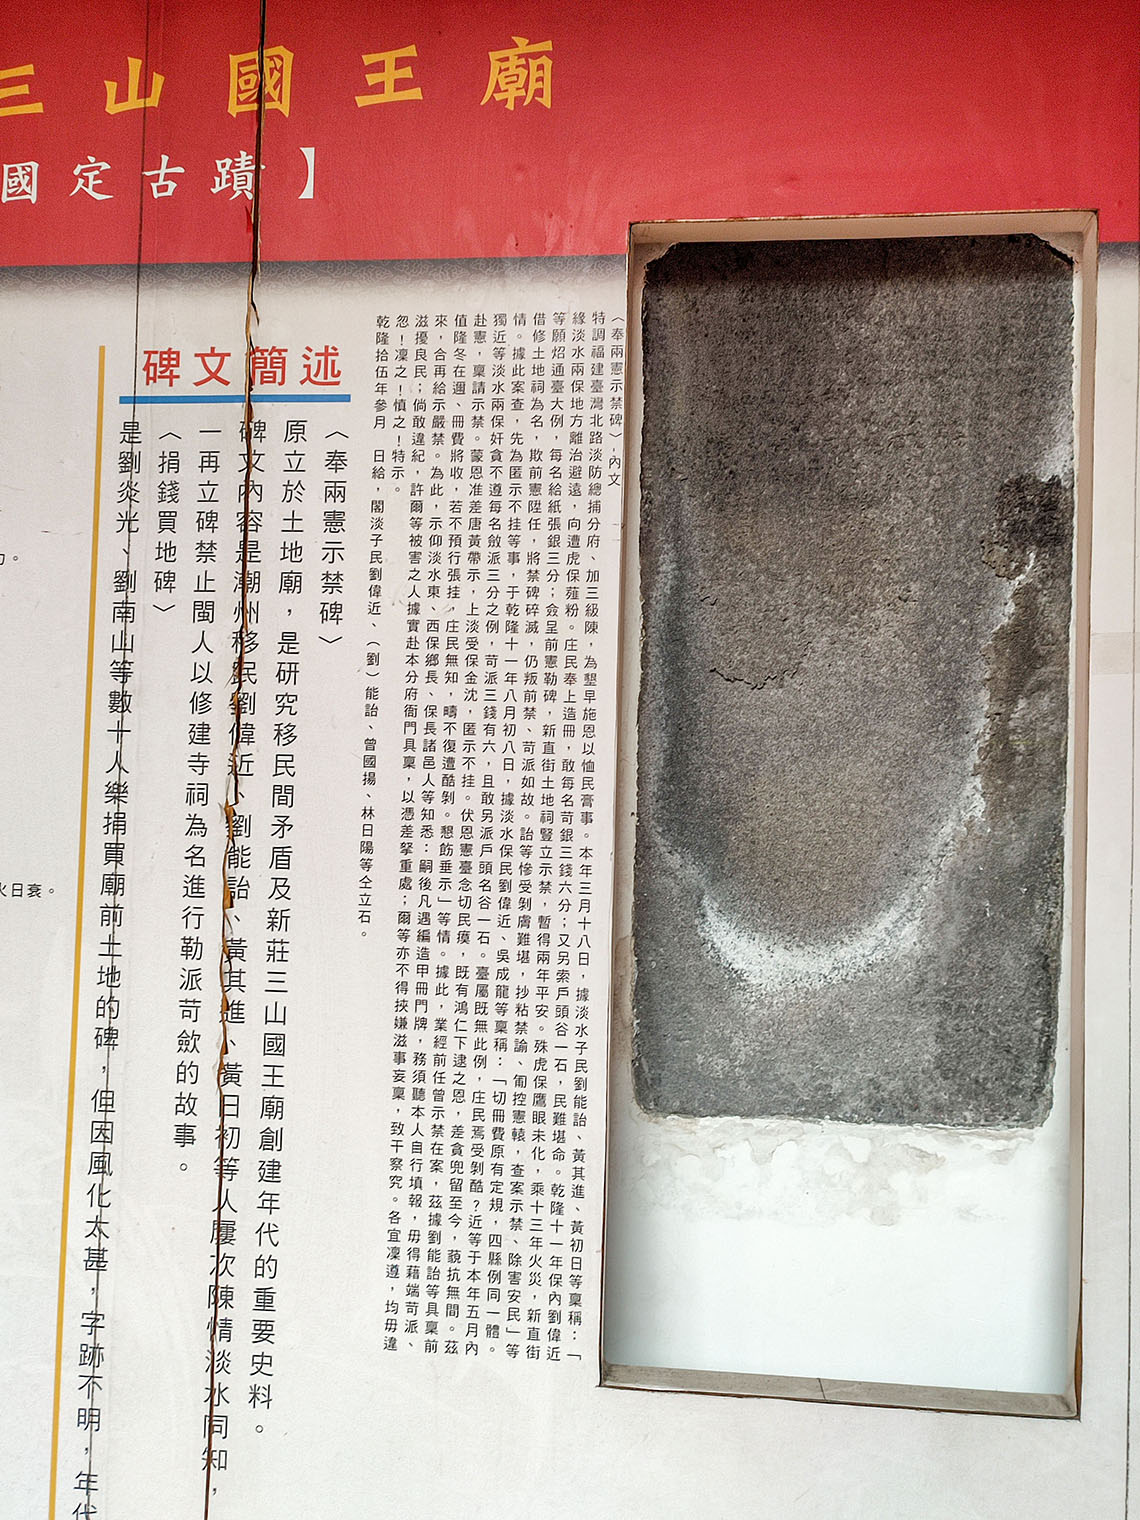 三山國王廟
國定古蹟】
〈奉兩憲示禁碑〉，內文
特調福建臺灣北路淡防總捕分府、加三級陳，為墾早施恩以恤民膏事。本年三月十八日，據淡水子民劉能詒、黃其進、黃初日等稟稱：「
緣淡水兩保地方離治避遠，向遭虎保薤粉。庄民奉上造冊，敢每名苛銀三錢六分；又另索戶頭谷一石，民難堪命。乾隆十一年保內劉偉近
等願炤通臺大例，每名給紙張銀三分；僉呈前憲勒碑，新直街土地祠豎立示禁，暫得兩年平安。殊虎保鷹眼未化，乘十三年火災，新直街
借修土地祠為名，欺前憲陞任，將禁碑碎滅，仍叛前禁、苛派如故。詒等慘受剝膚難堪，抄粘禁諭、匍控憲轅，查案示禁、除害安民」等
情。據此案查，先為匿示不挂等事，于乾隆十一年八月初八日，據淡水保民劉偉近、吳成龍等稟稱：「切冊費原有定規，四縣例同一體。
獨近等淡水兩保奸貪不遵每名斂派三分之例，苛派三錢有六，且敢另派戶頭名谷一石。臺屬既無此例，庄民焉受剝酷？近等于本年五月內
赴憲，稟請示禁。蒙恩准差唐黃帶示，上淡受保金沈，匿示不挂。伏恩憲臺念切民瘼，既有鴻仁下逮之恩，差貪兜留至今，藐抗無間。茲
值隆冬在週、冊費將收，若不預行張挂，庄民無知，疇不復遭酷剝。懇飭垂示」等情。據此，業經前任曾示禁在案，茲據劉能詒等具稟前
來，合再給示嚴禁。為此，示仰淡水東、西保鄉長、保長諸邑人等知悉：嗣後凡遇編造甲冊門牌，務須聽本人自行填報，毋得藉端苛派、
滋擾良民；倘敢違紀，許爾等被害之人據實赴本分府衙門具稟，以憑差拏重處；爾等亦不得挾嫌滋事妄稟，致干察究。各宜凜遵，均毋違
忽！凜之！慎之！特示。
乾隆拾伍年參月　日給，閣淡子民劉偉近、（劉）能詒、曾國揚、林日陽等仝立石。
碑文簡述
〈奉兩憲示禁碑〉
原立於土地廟，是研究移民間矛盾及新莊三山國王廟創建年代的重要史料。
碑文內容是潮州移民劉偉近、劉能詒、黃其進、黃日初等人屢次陳情淡水同知，
一再立碑禁止閩人以修建寺祠為名進行勒派苛歛的故事。
〈捐錢買地碑〉
是劉炎光、劉南山等數十人樂捐買廟前土地的碑，但因風化太甚，字跡不明，年代
。
火日衰。